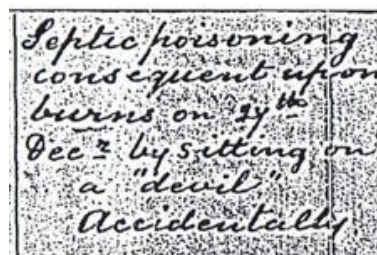 Septic poisoning
consequent upon
burns on 29th
Decr by sitting on
a "devil"
Accidentally